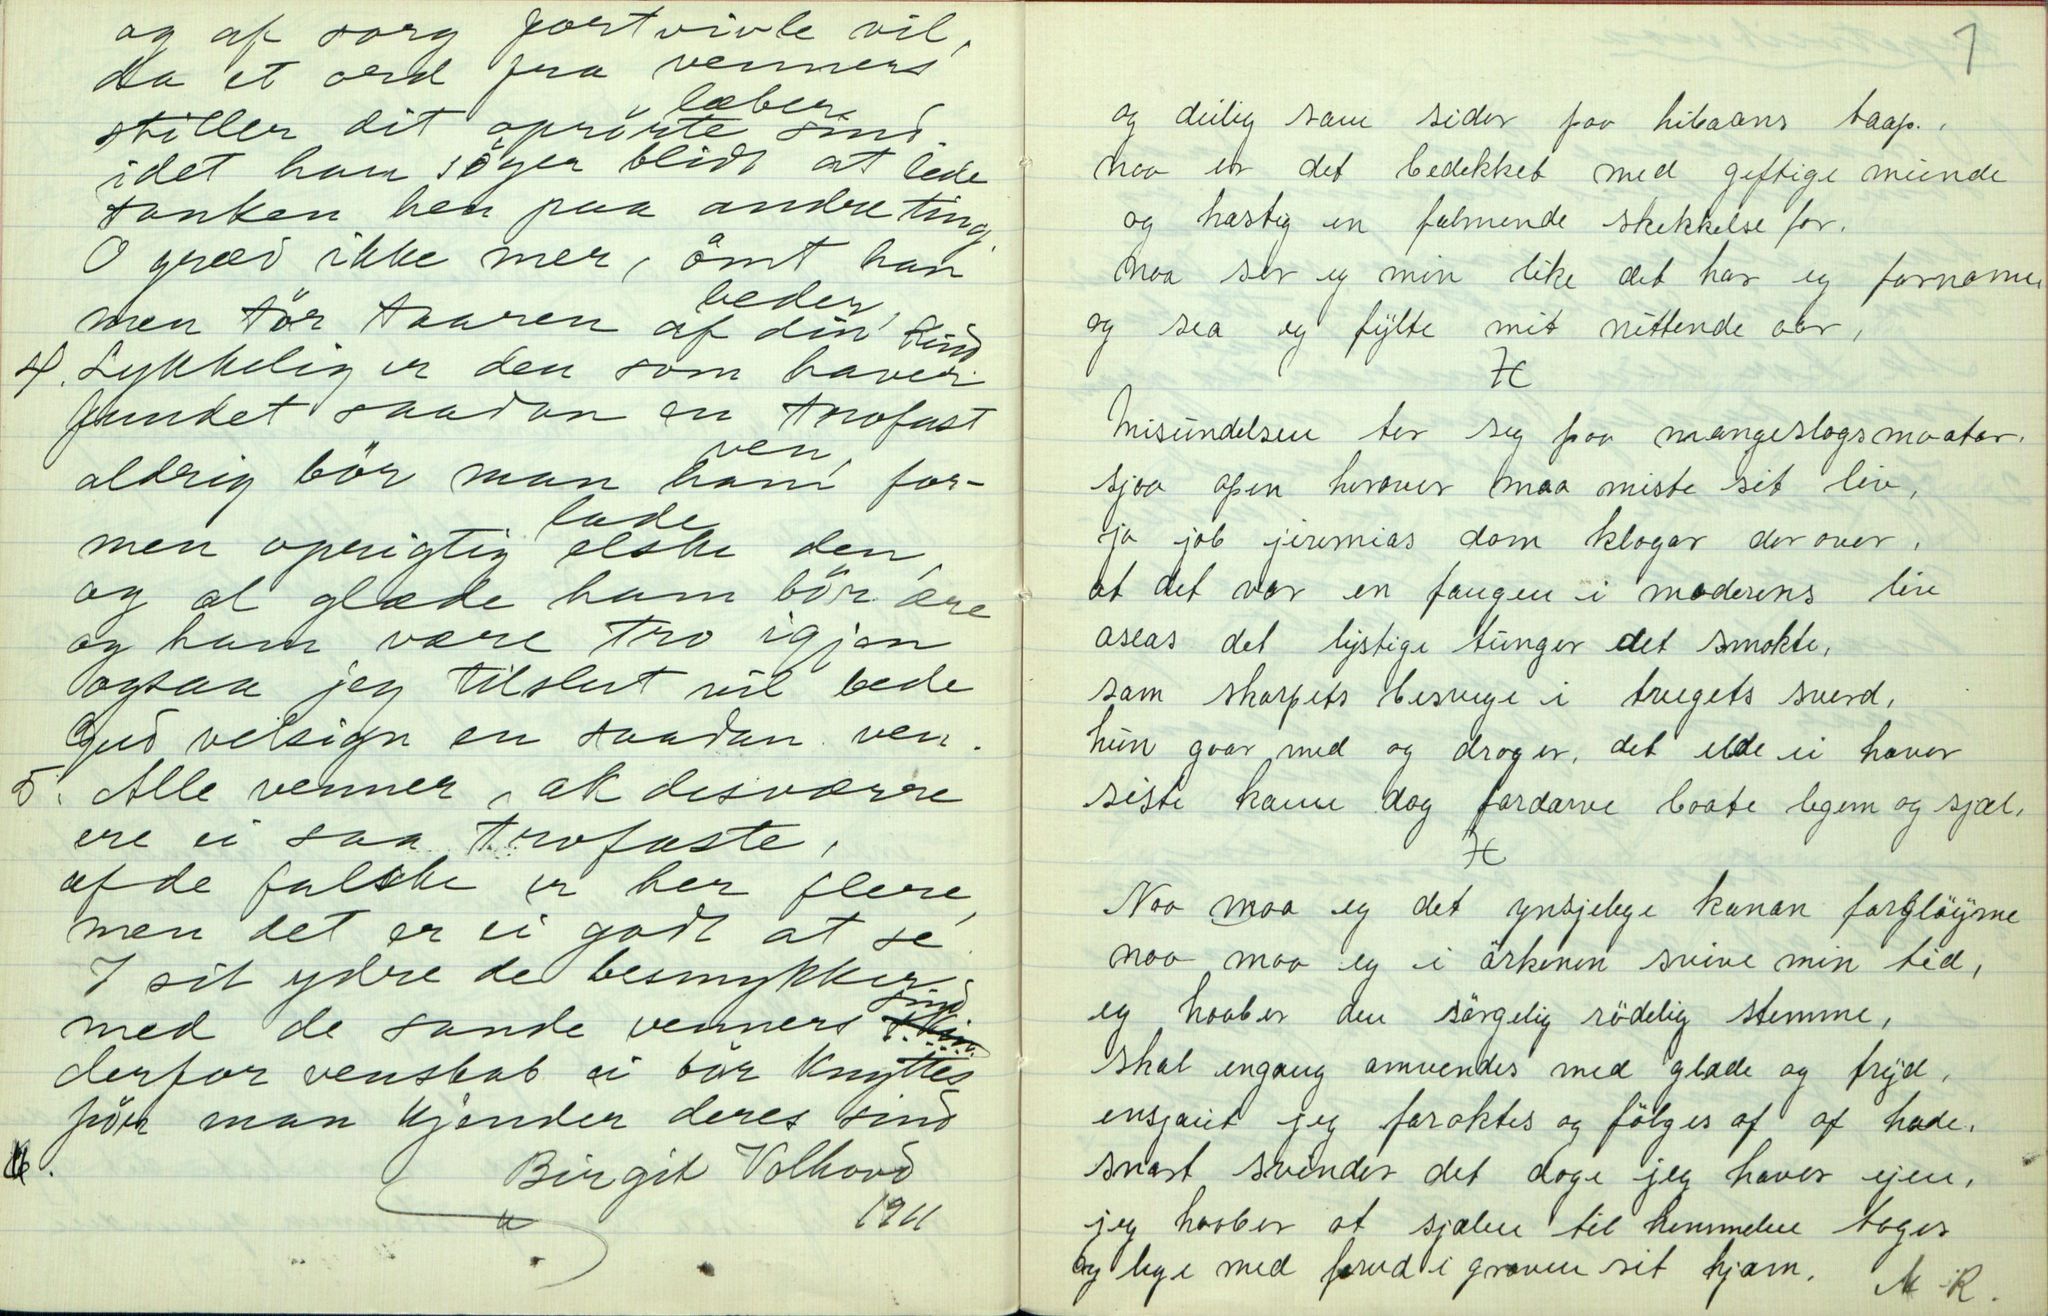 og af sorg fortvivle vil,
da et ord fra venners
læber
stiller dit oprörte sind
idet han söger blidt at lede
tanken hen paa andre ting.
O græd ikke mer, ömt han
beder,
men tör taaren af din kind
4. Lykkelig er den som haver
fundet saadan en trofast
ven,
aldrig bör man ham for-
lade
men oprigtig elske den,
og at glæde ham bör ære
og ham være tro igjen
ogsaa jeg tilslut vil bede
Gud velsign en saadan ven.
5. Alle venner, ak desværre
ere ei saa trofaste,
af de falske er her flere,
men det er ei godt at se
I sit ydre de besmykker
sind
med de sande venners skin
derfor venskab ei bör knyttes
för man kjender deres sind
Birgit Volhovd
1911
1
og deilig som sider paa libaans taap.,
naa er det bedekket med geftige munde
og hastig en falmende skekkelse for.
Naa ser eg min like det har eg fornome
og sea eg fylte mit nittende aar,
Misundelsen ter seg paa mangeslagsmaatar.
sjaa open herover maa miste sit liv,
ja job jeremias dom klagar derover,
at det var en fangen i moderens liv
aseas det lystige tunger det smakte,
som skarpets besvege i tvegets sverd,
hun gaar med og drager, det elde ei haver
siste kann dog fordarve baate legem og sjæl.
Naa maa eg det ynsjelege kanan forgløyme
naa maa eg i örkenen svive min tid,
eg haaber den sörgelig rödelig stemme,
skal engang omvendes med glade og fryd,
ensjaut jeg foraktes og fölges af af hade.
snart svinder det dage jeg haver ejen,
jeg haaber at sjælen til himmelen tages
og lege med fred i graven sit hjæm. M R.